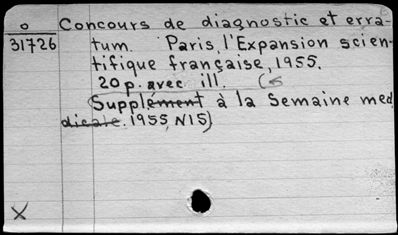 o Concours de diagnostic et erra-
31726 tum. Paris, l'Expansion scien-
tifique française, 1955.
20 p. avec ill. (
Supplément à la Semaine med
dicale. 1955, N15)
X